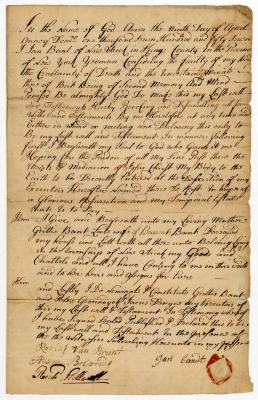 In the Name of God Amen the Ninth Day of April
Anno Dom: one thousand Seven Hundred and fifty Seven
I Jan Bant of New Utrecht in Kings County in the Province
of New York Yeoman Considering the frailty of my
the Certainty of Death and the Uncertain
of But Being of Sound Memory and Mind
Praised Be almighty God Do make this my Last Will
and Testament Hereby Revoking and Disanulling all former
Wills and Testaments By me heretofore at any time and
Either in Word or writing and Declaring this only to
Be my Last will and Testament in manner following
first I Bequeath my Soul to God who Gave it me
Hoping the Pardon of all my Sins Past thro the
Merits & Mediation of Jesus Christ My Body to the
Earth to be Decently Interred at the Discretion of my
Executors Hereafter Named there to Rest in hope of
a Glorious Resurrection and my Temporal Estate
that is to Say
Item I Give and Bequeath unto my Loving Mother
Gritie Bant Late wife of Bant Deceased
my house and Lott with all there unto Belonging
in the township of New Utrecht my Goods and
Chattels and all I have Coming to me on this world
and to her heirs and assigns for Ever
Item
and Lastly I Do Nominate & Constitute Gritie Bant
and my Executors
this my Last will & Testament In Testimony whereof
I have Signed Sealed Published & Declared this to be
my Last Will and Testament In the presence of
the Witnesses Subscribing Hereunto in my presence
Roelof Van Brunt
Jan bandt